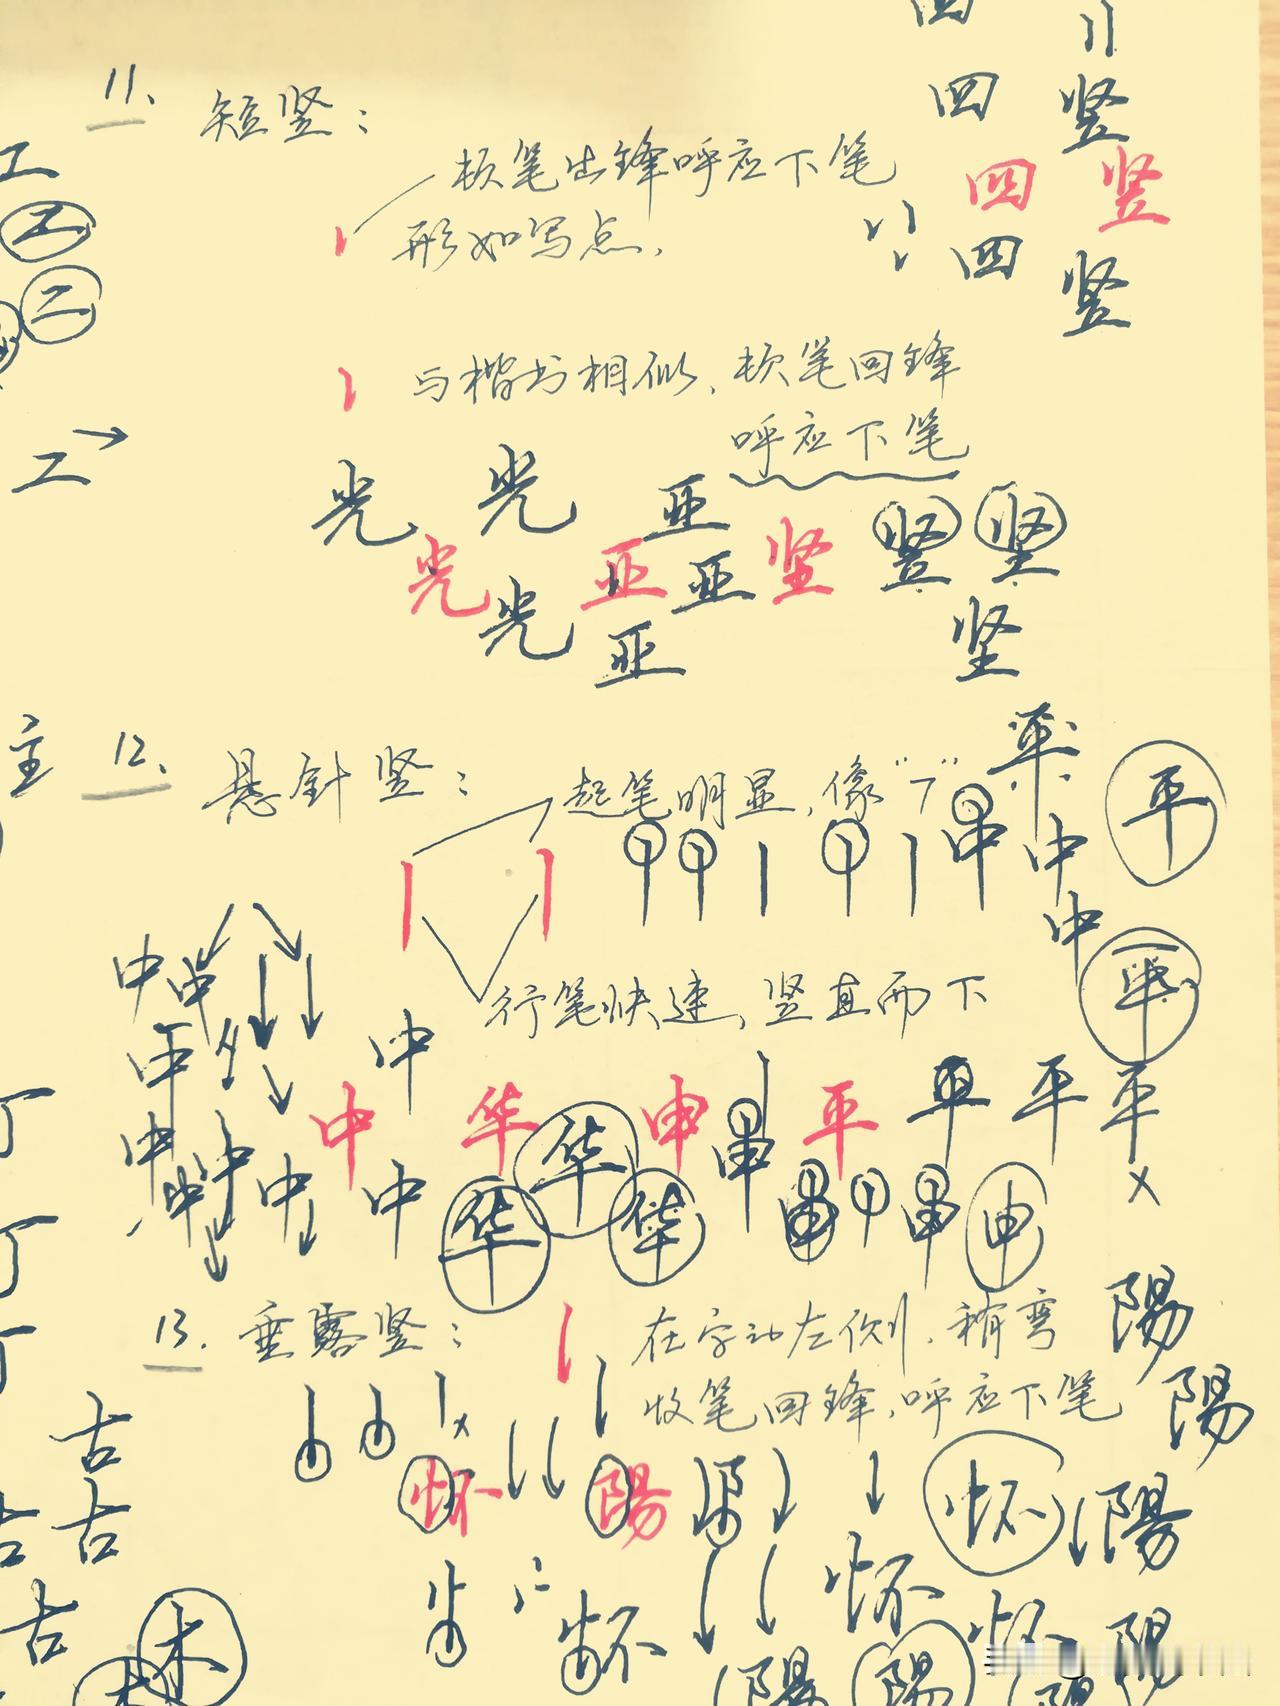 11. 短竖：
顿笔出锋呼应下笔
形如写点.
四 竖
四 竖
四 竖
工
工
工
工
与楷书相似, 顿笔回锋
呼应下笔
光 光 亚 竖 竖
光 亚 亚 坚
光 亚 坚
主
12. 悬针竖：
起笔明显, 像“7”
平 平
中 中
中 华
行笔快速, 竖直而下
中 中
中 中
中 华 申 平 平 平 平 ×
中 中 中 中 中 华
华 华 申 申 申
13. 垂露竖：
在字的左侧, 稍弯
收笔回锋, 呼应下笔
陽
陽
古
怀 陽 怀 陽
古
怀
古
怀 怀 陽
木
陽 陽